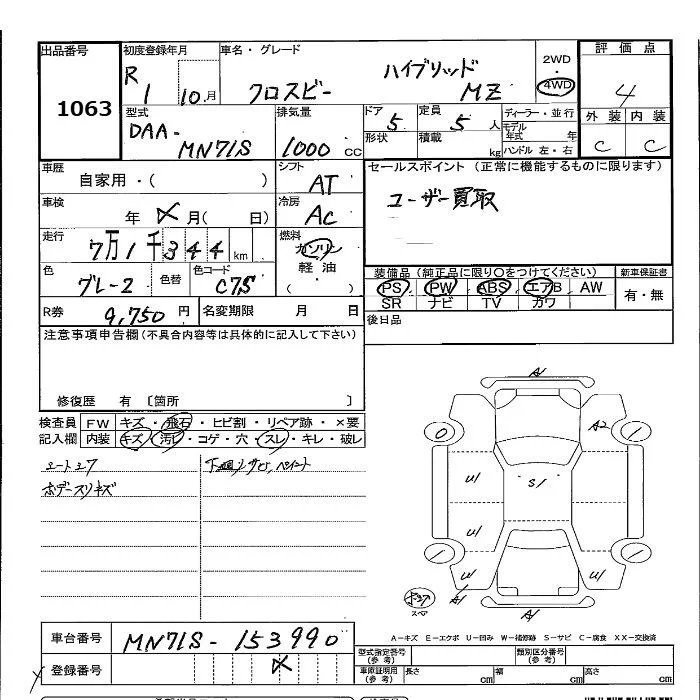 出品番号 初度登録年月 車名・グレード 2WD 評価点
R 1 10月 クロスビー ハイブリッド MZ 4WD 4
1063
型式 排気量 ドア 5 定員 5 人 ディーラー・並行 外装 内装
DAA- MN71S 1000 CC 形状 積載 kg モデル年式 年 C C
ハンドル 左・右
車歴 自家用・( ) シフト AT セールスポイント(正常に機能するものに限ります)
ユーザー買取
車検 年 月( 日) 冷房 AC
走行 7万1千344km 燃料 ガソリン 軽油 (・)
色 グレー2 色替 色コード C7S
装備品(純正品に限り〇をつけてください) 新車保証書
PS PW ABS エアB AW 有・無
SR ナビ TV カワ
R券 9,750円 名変期限 月 日
後日品
注意事項申告欄(不具合内容等は具体的に記入して下さい)
修復歴 有 〔箇所 〕
検査員 FW キズ・飛石・ヒビ割・リペア跡・×要
記入欄 内装 キズ・汚レ・コゲ・穴・スレ・キレ・破レ
ボデースリキズ
A/
A2
U/
S/
U/
W/
U/
A/
A/
スペア
A-キズ E-エクボ U-凹み W-補修跡 S-サビ C-腐食 XX-交換済
車台番号 MN71S-153990
登録番号
型式指定番号(参考) 類別区分番号(参考)
車庫証明用(参考) 長さ cm 幅 cm 高さ cm